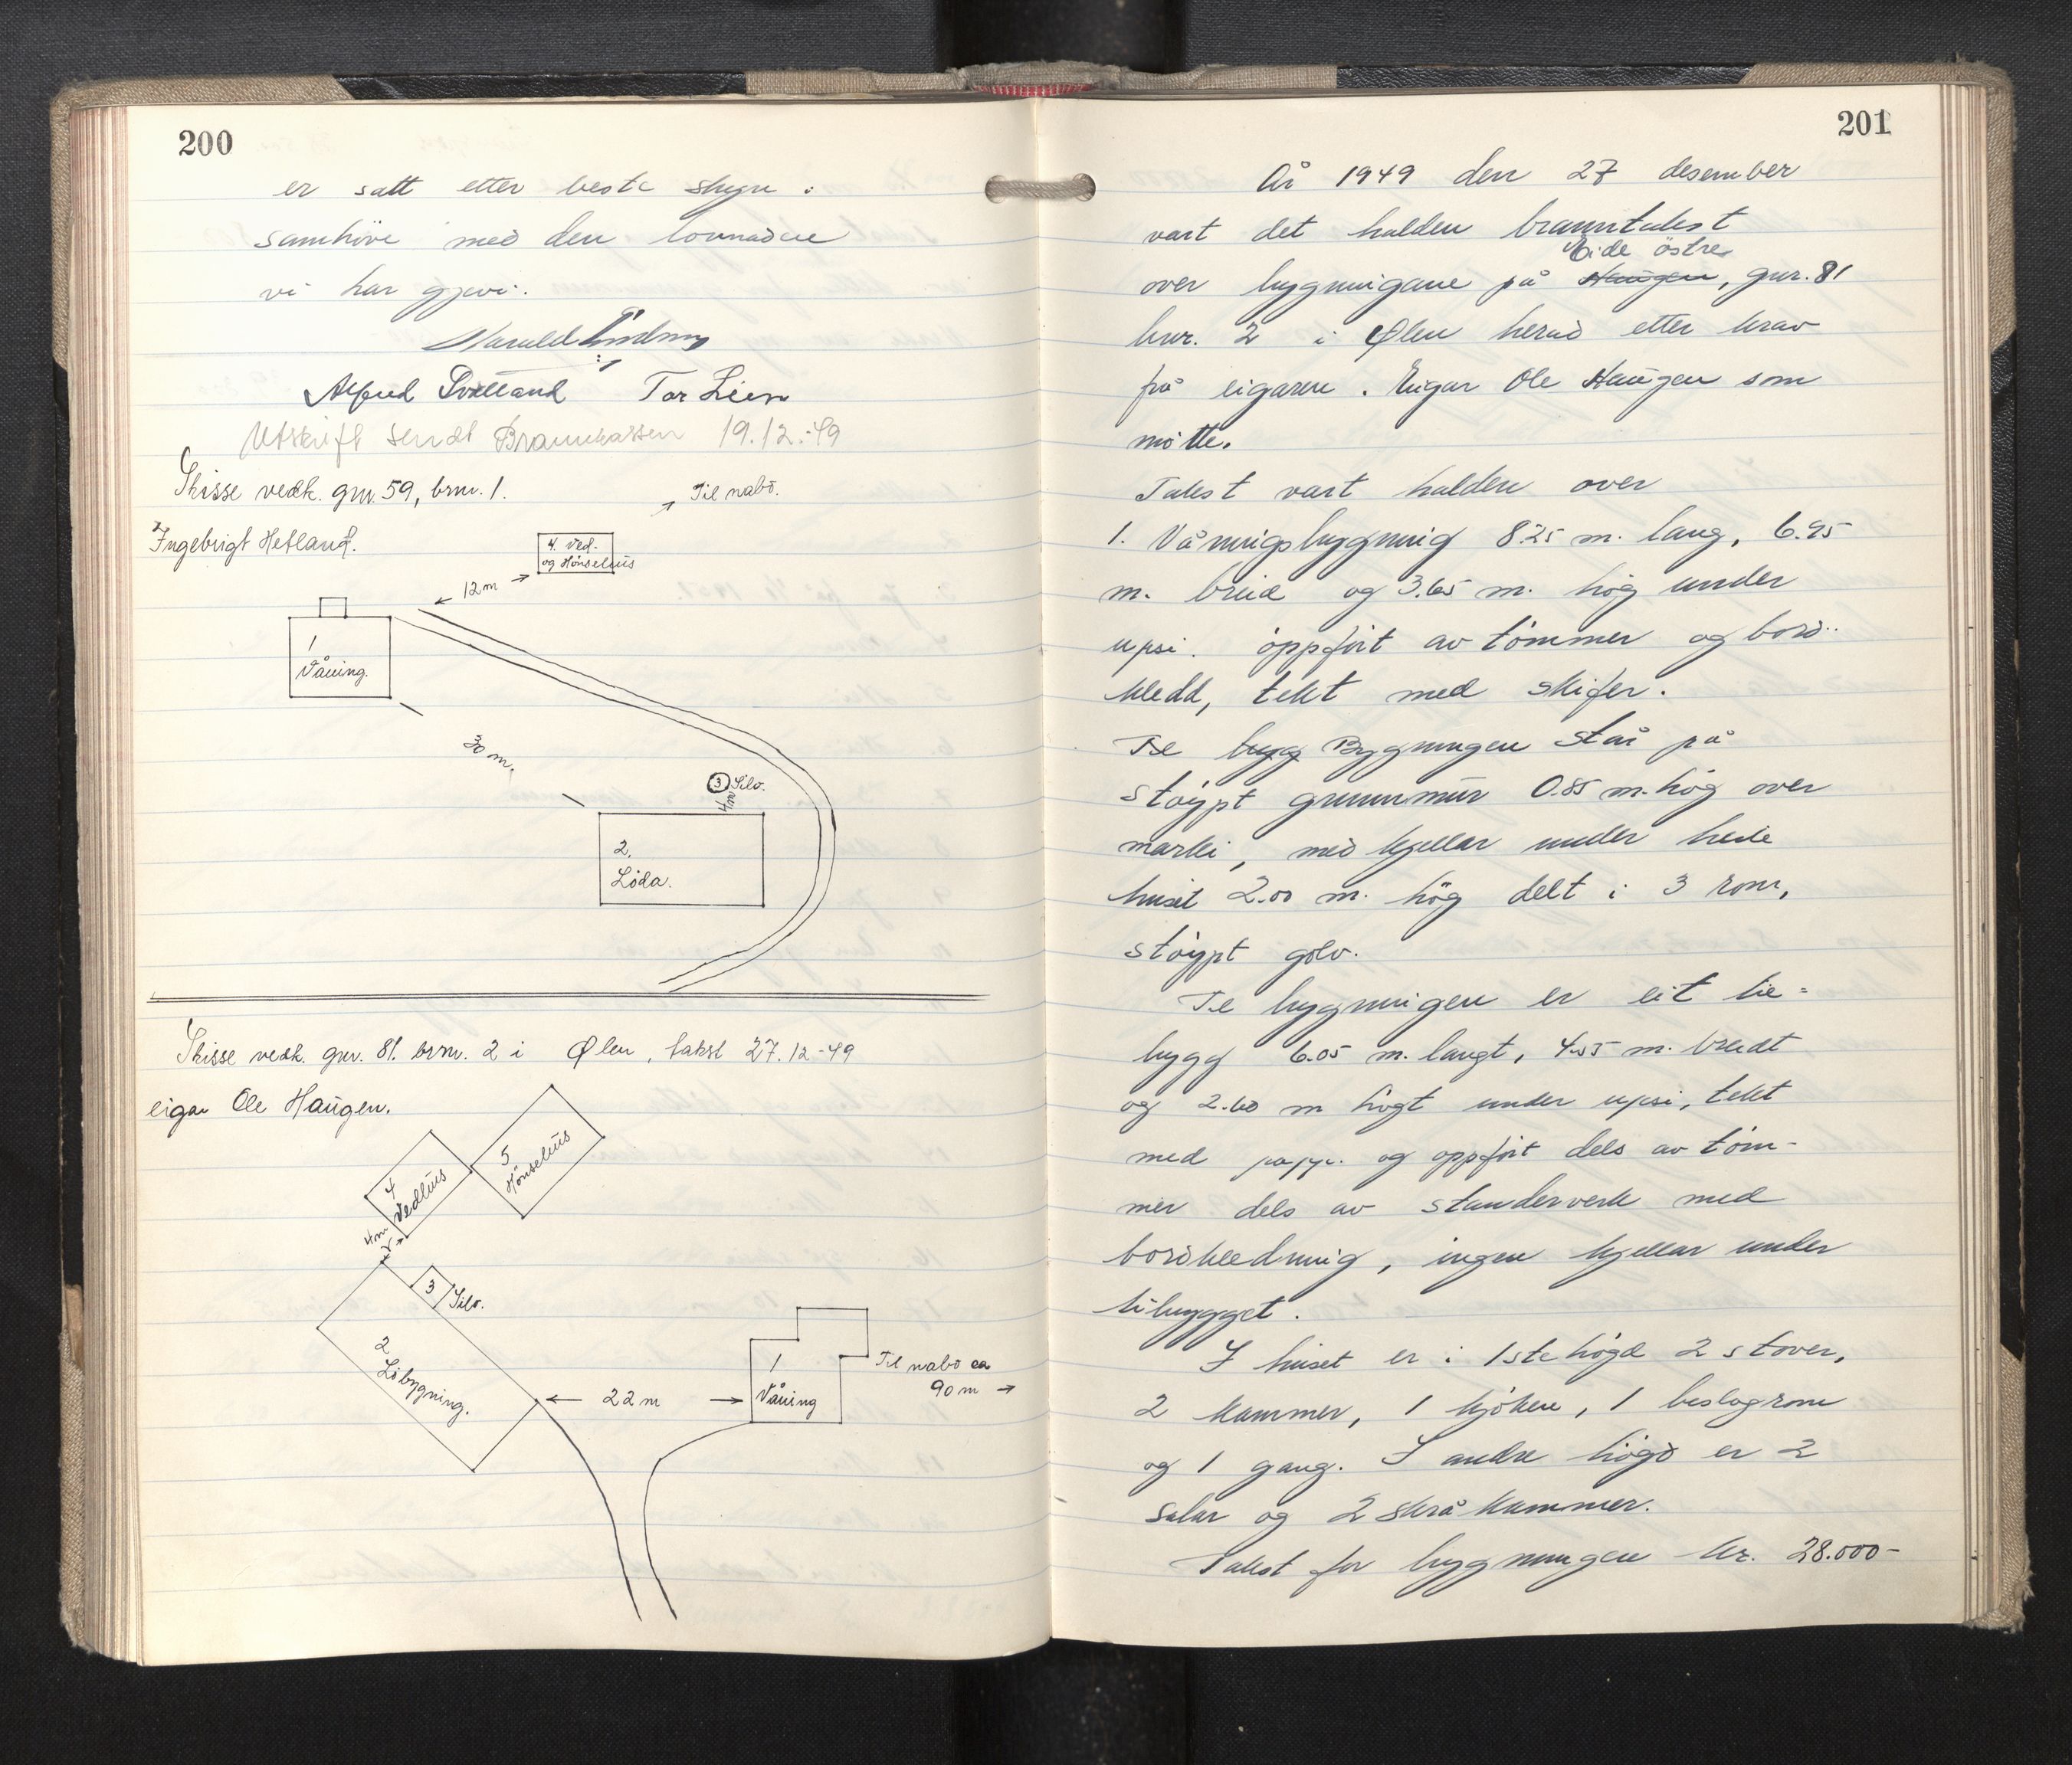 200
er satt etter beste skyn i
samhöve med den lovnaden
vi har gjevi.
Harald
Alfred Svelland Tor Lien
Utskrift sendt Brannkassen 19.12.-49
Skisse vedk. gnr. 59, brnr. 1.
Til nabo.
Ingebrigt Hetland.
4. Ved-
og Hönsehus
12 m
1
Våning.
30 m.
3 Silo.
4m
2.
Löda.
Skisse vedk. gnr. 81. brnr. 2 i Ølen, takst 27.12-49
eigar Ole Haugen.
5
Hönsehus
4
Vedhus
4m
3 Silo.
2
Löbygning.
22 m
1
Våning
Til nabo ca
90 m
201
År 1949 den 27 desember
vart det halden branntakst
Eide östre
over bygningane på Haugen, gnr. 81
bnr. 2 i Ølen herad etter krav
frå eigaren. Eigar Ole Haugen som
mötte.
Takst vart halden over
1. Våningsbygning 8.25 m. lang, 6.95
m. breid og 3.65 m. hög under
upsi. oppfört av tömmer og bord-
kledd, tekt med skifer.
Til bygg Bygningen står på
stöypt grunnmur 0.85 m. hög over
marki, med kjellar under heile
huset 2.00 m. hög delt i 3 rom,
stöypt golv.
Til bygningen er eit til=
bygg 6.05 m. langt, 4.55 m. breidt
og 2.60 m högt under upsi, tekt
med papp. og oppfört dels av töm-
mer dels av standerverk med
bordkledning, ingen kjellar under
tilbygget.
I huset er i 1ste högd 2 stover,
2 kammer, 1 kjöken, 1 beslagrom
og 1 gang. I andre högd er 2
salar og 2 skråkammer.
Takst for bygningen kr. 28.000-